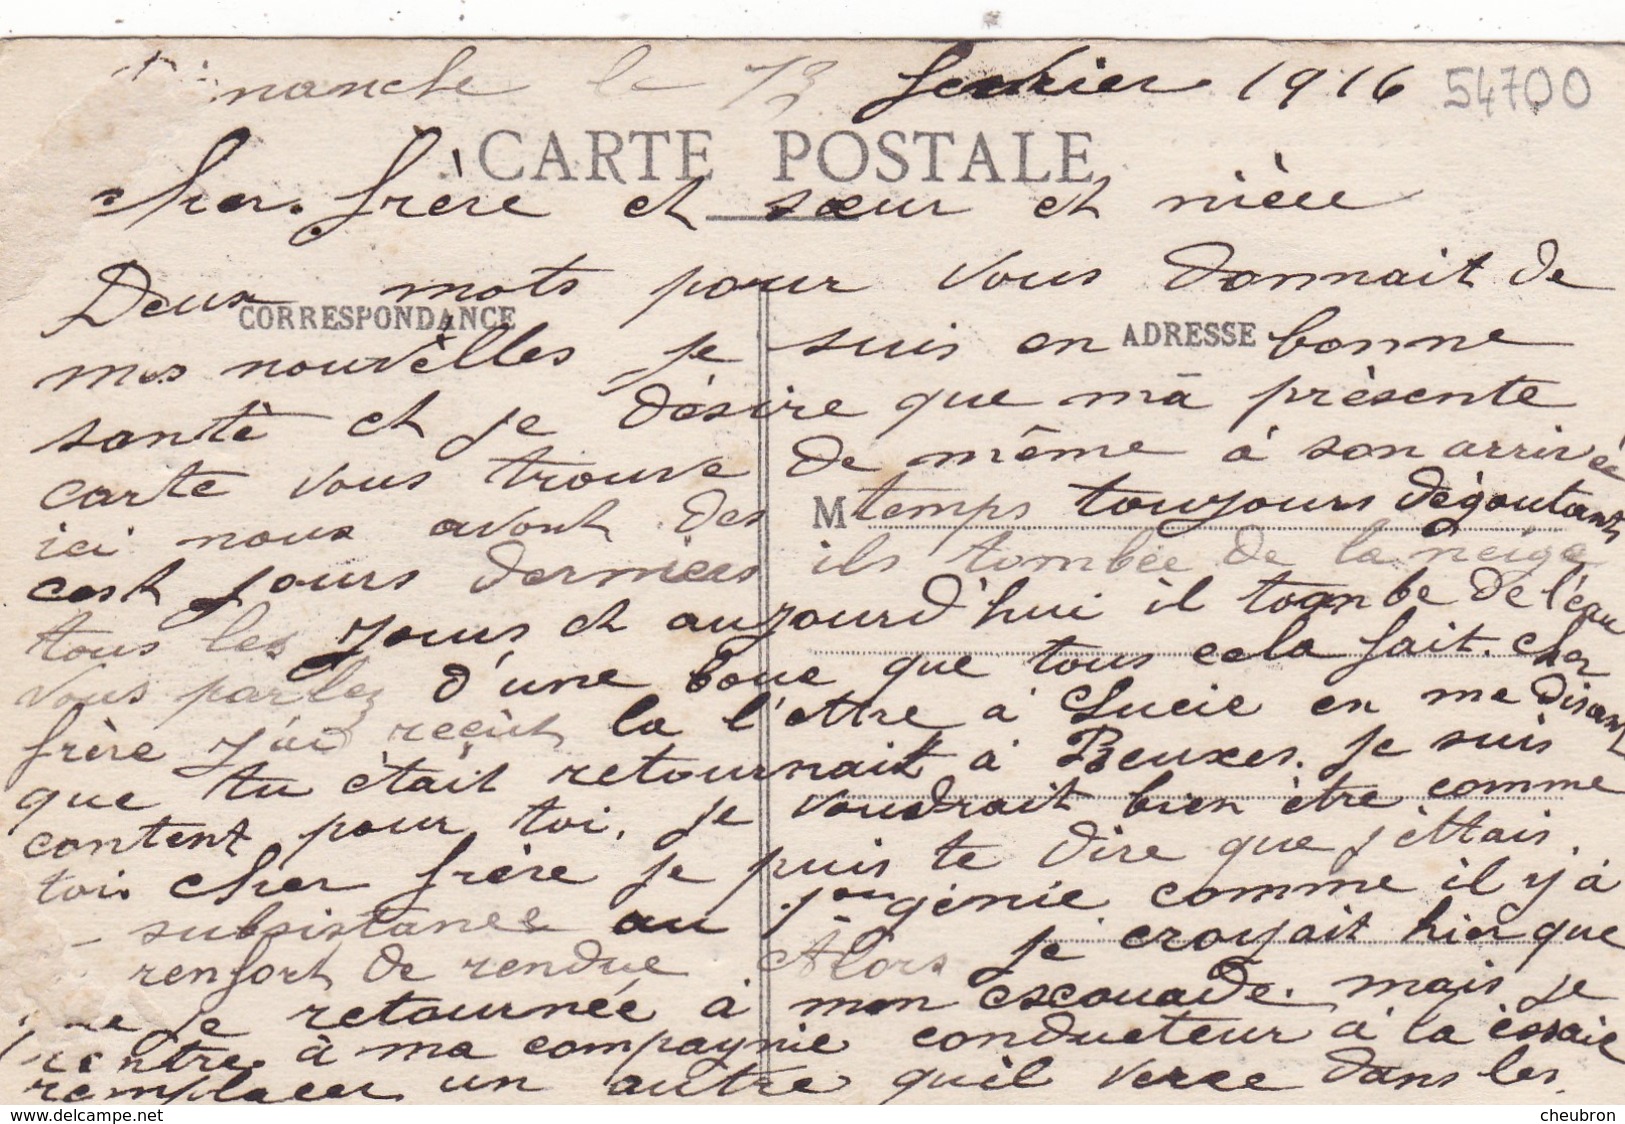 Dimanche le 13 fevrier 1916 54700
CARTE POSTALE
cher frère et sœur et nièce
Deux mots pour vous donnait de
CORRESPONDANCE
mes nouvèlles je suis en bonne
ADRESSE
santè et je désire que mà prèsente
carte vous trouve de même à son arrivée
ici nous avont des temps toujours dègoutants
M
cest jours derniers ils tombèe de la neige
tous les jours, et aujourd'hui il toombe de l'eau
vous parlez d'une boue que tous cela fait. cher
frère j'ai recùt la l'ettre à Lucie en me disant
que tu ètait retournait à Beuxes. je suis
content pour toi, je voudrait bien être comme
toi. cher frère je puis te dire que j'èttais
subsistance au gènie comme il y à
renfort de rendue Alors je croyait hier que
je retournée à mon escouade. mais je
rentre à ma compagnie conducteur à la
remplacer un autre qu'il verse dans les
cheubron
www.delcampe.net